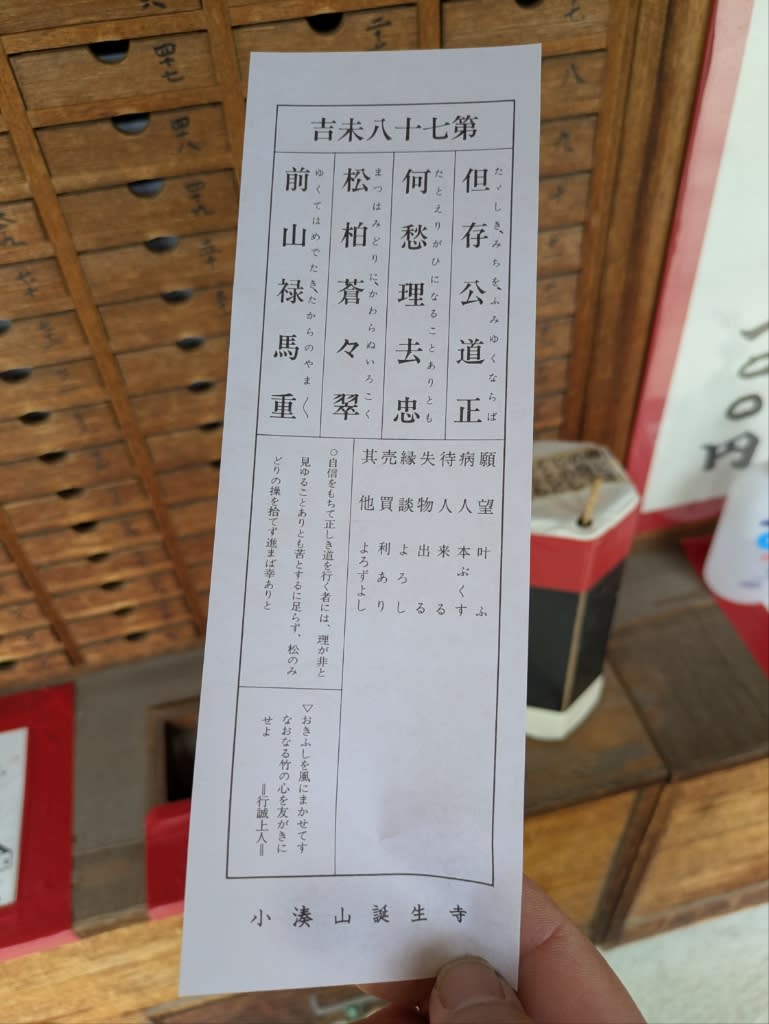 第七十八未吉
但存公道正
たゞしき、みちを、ふみゆくならば
何愁理去忠
たとえりがひになることありとも
松柏蒼々翠
まつはみどりに、かわらぬいろこく
前山禄馬重
ゆくてはめでたき、たからのやま〱
願望 叶ふ
病人 本ぶくす
待人 来る
失物 出る
縁談 よろし
売買 利あり
其他 よろずよし
○自信をもちて正しき道を行く者には、理が非と
見ゆることありとも苦とするに足らず、松のみ
どりの操を拾てず進まば幸ありと
▽おきふしを風にまかせてす
なおなる竹の心を友がきに
せよ
＝行誠上人＝
小湊山誕生寺
四十七
四八
八
一〇〇円